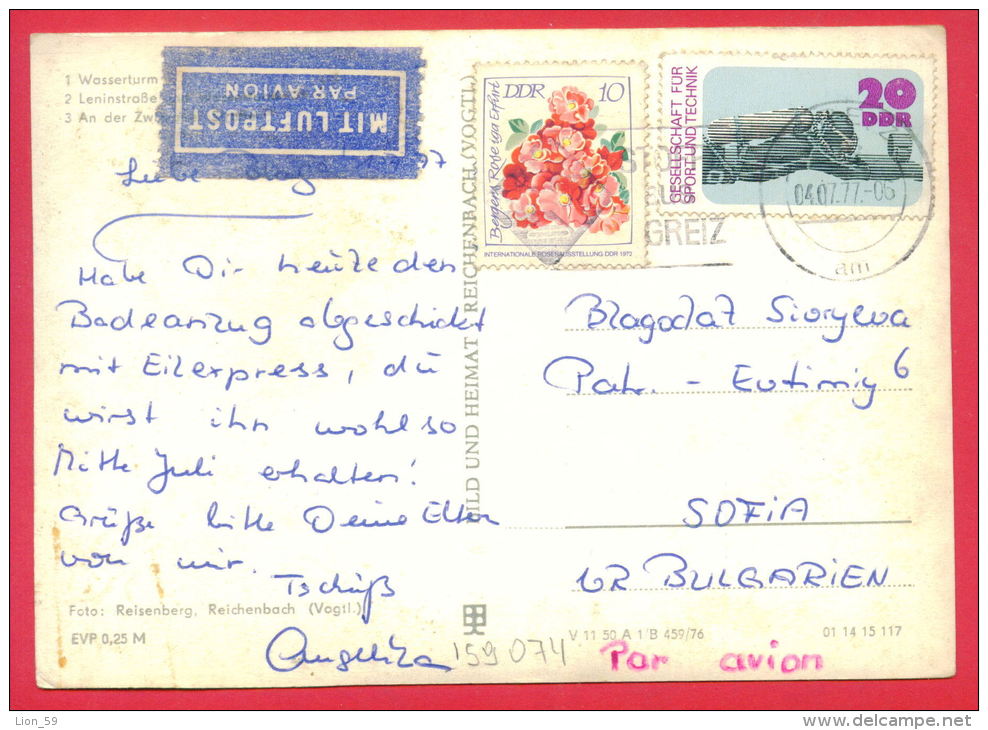 1 Wasserturm
2 Leninstraße
3 An der
MIT LUFTPOST
PAR AVION
Liebe
Habe Dir heute den
Badeanzug abgeschickt
mit Eilexpress, du
wirst ihn wohl so
Mitte Juli erhalten!
Grüße bitte Deine Eltern
von mir.
Tschüß
Angelika
Foto: Reisenberg, Reichenbach (Vogtl.)
EVP 0,25 M
BILD UND HEIMAT REICHENBACH (VOGTL)
DDR 10
Bergers Rose iga Erfurt
INTERNATIONALE ROSENAUSSTELLUNG DDR 1972
GESELLSCHAFT FÜR
SPORT UND TECHNIK
20
DDR
GREIZ
04.07.77.-06
am
Blagodat
Patr. - Evtimiy 6
SOFIA
VR BULGARIEN
V 11 50 A 1/B 459/76
01 14 15 117
159074
Par avion
Lion_59
www.delcampe.net